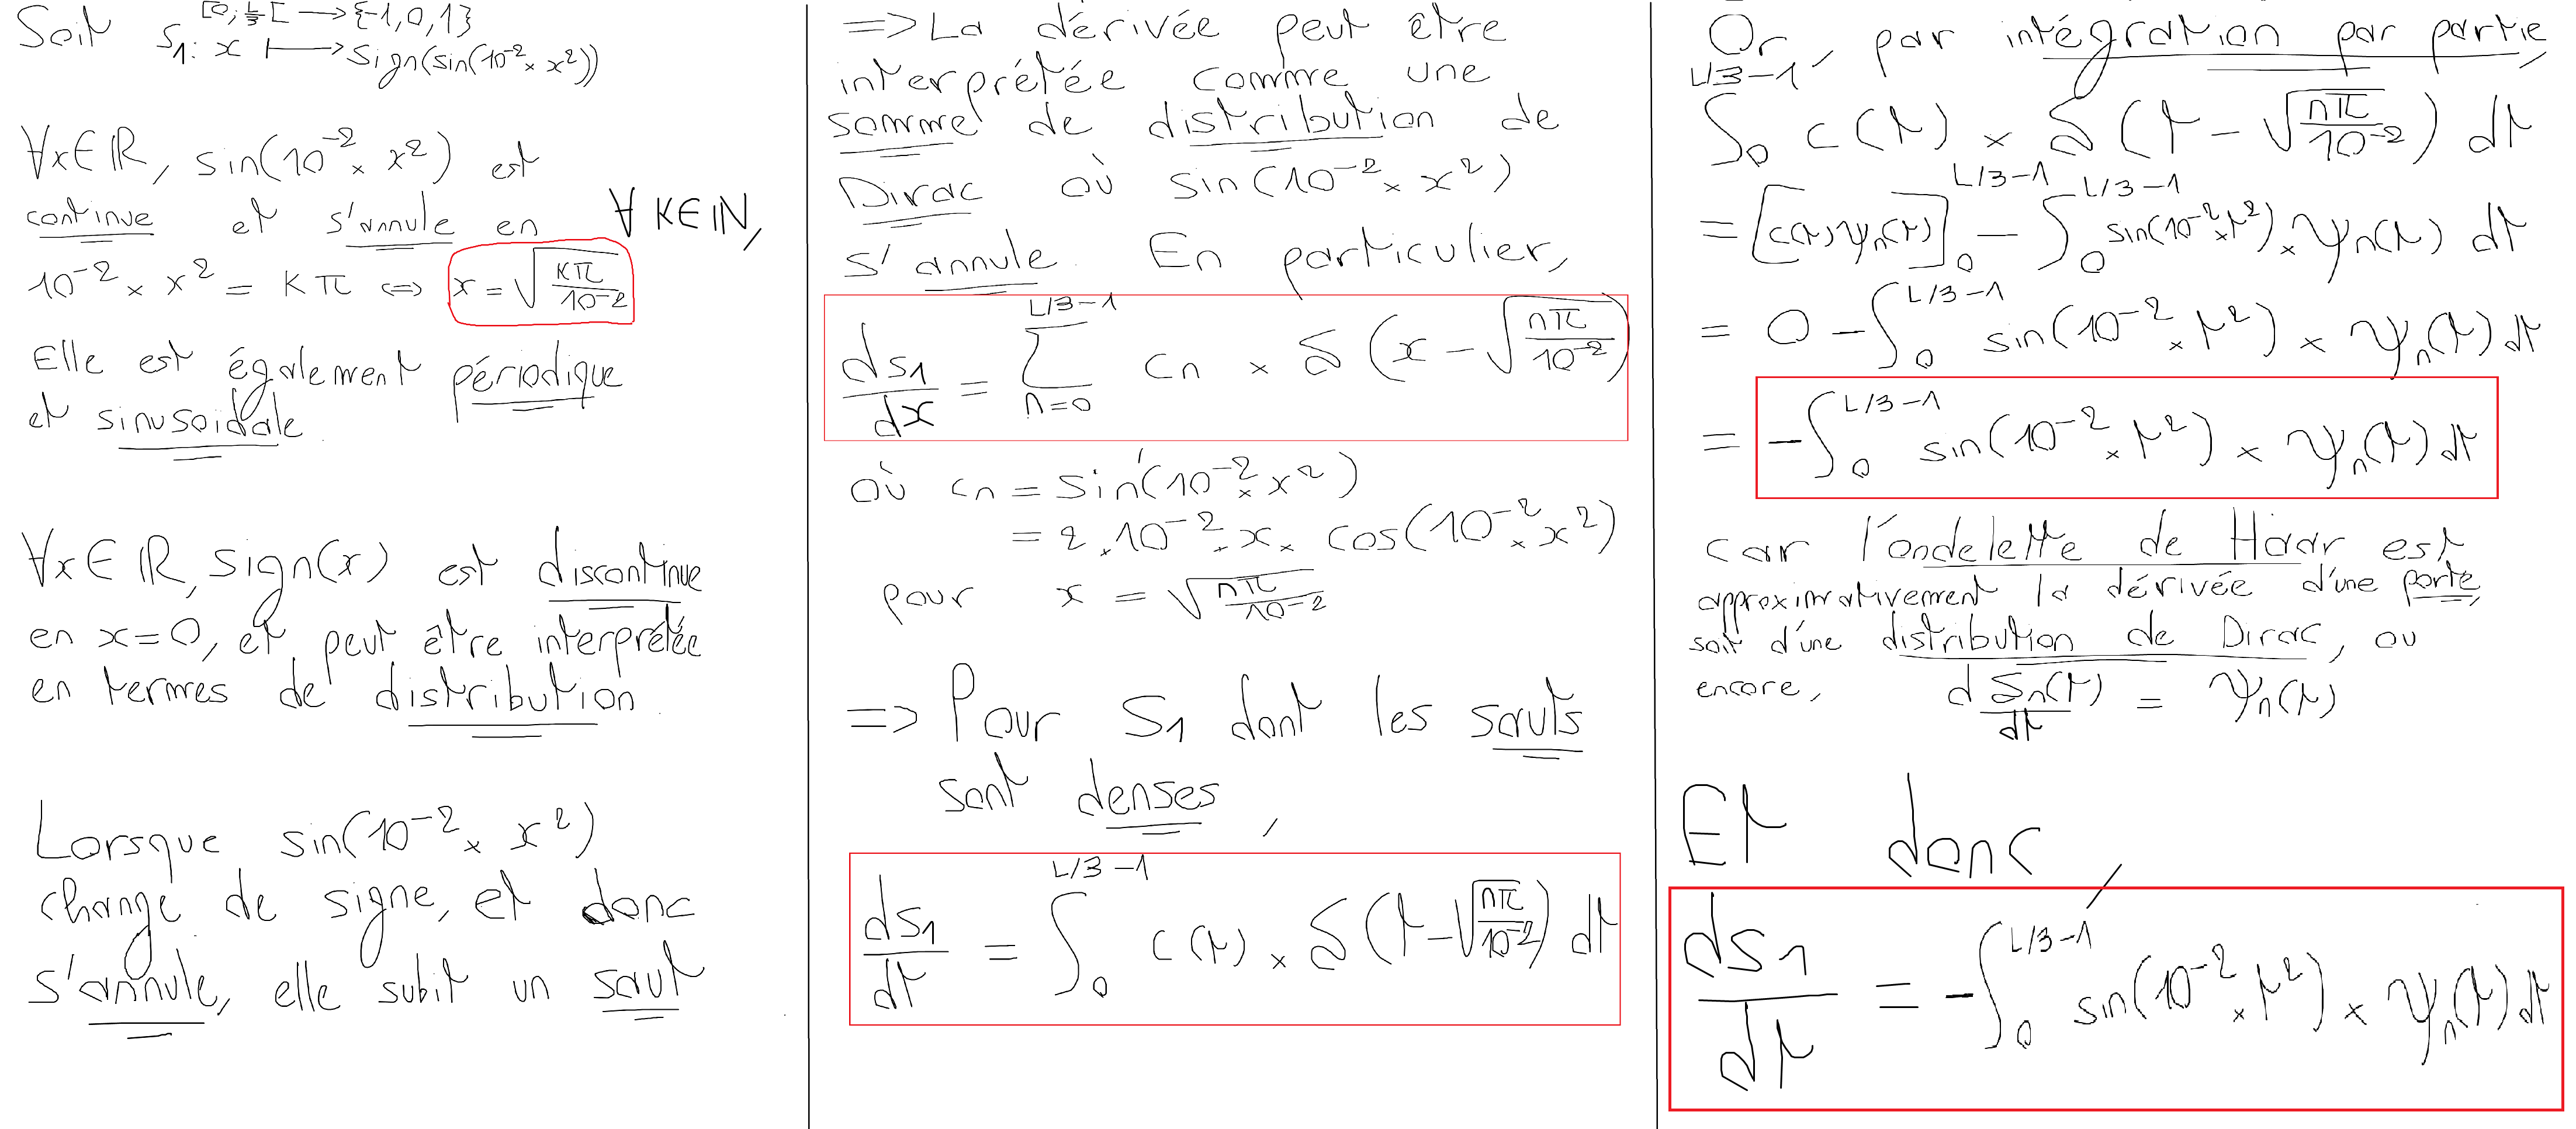 Soit s₁: [0; L/3[ ⟶ {-1,0,1}
x ⟼ sign(sin(10⁻² × x²))
∀x∈ℝ, sin(10⁻² × x²) est
continue et s'annule en ∀ K∈ℕ,
10⁻² × x² = Kπ ⇔ x = √(Kπ/10⁻²)
Elle est également périodique
et sinusoidale
∀x∈ℝ, sign(x) est discontinue
en x=0, et peut être interprétée
en termes de distribution
Lorsque sin(10⁻² × x²)
change de signe, et donc
s'annule, elle subit un saut
=> La dérivée peut être
interprétée comme une
somme de distribution de
Dirac où sin(10⁻² × x²)
s'annule. En particulier,
ds₁/dx = ∑_{n=0}^{L/3-1} cn × δ(x - √(nπ/10⁻²))
où cn = sin'(10⁻² × x²)
= 2 × 10⁻² × x × cos(10⁻² × x²)
pour x = √(nπ/10⁻²)
=> Pour s₁ dont les sauts
sont denses,
ds₁/dt = ∫₀^{L/3-1} c(t) × δ(t - √(nπ/10⁻²)) dt
Or, par intégration par partie,
∫₀^{L/3-1} c(t) × δ(t - √(nπ/10⁻²)) dt
= [c(t)ψn(t)]₀^{L/3-1} - ∫₀^{L/3-1} sin(10⁻² × t²) × ψn(t) dt
= 0 - ∫₀^{L/3-1} sin(10⁻² × t²) × ψn(t) dt
= -∫₀^{L/3-1} sin(10⁻² × t²) × ψn(t) dt
car l'ondelette de Haar est
approximativement la dérivée d'une porte,
soit d'une distribution de Dirac, ou
encore, dδn(t)/dt = ψn(t)
Et donc,
ds₁/dt = -∫₀^{L/3-1} sin(10⁻² × t²) × ψn(t) dt